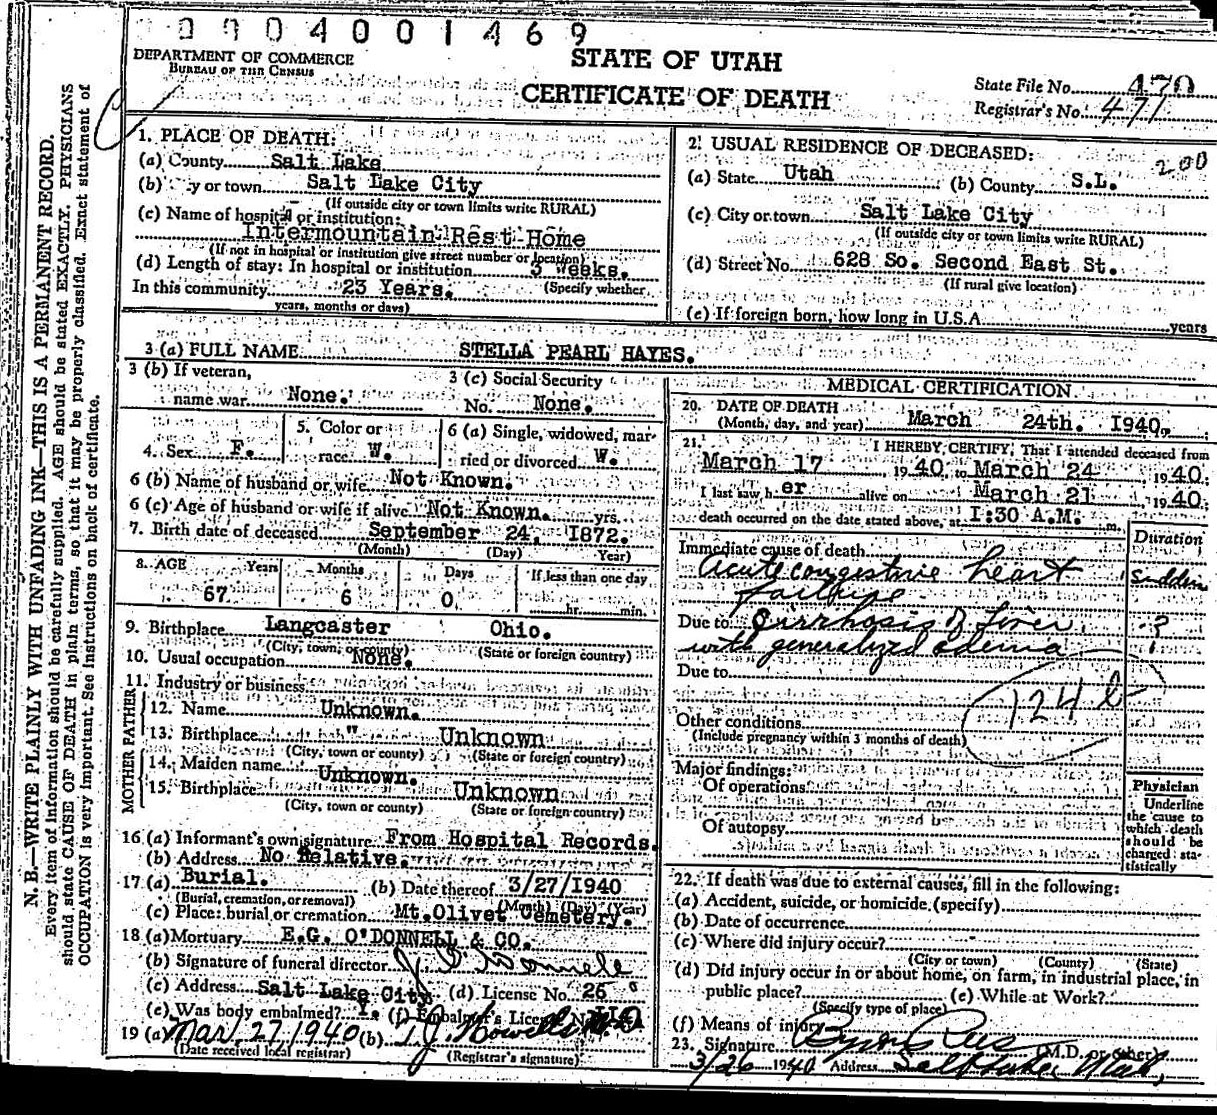 0004001469
DEPARTMENT OF COMMERCE
BUREAU OF THE CENSUS
STATE OF UTAH
CERTIFICATE OF DEATH
State File No. 470
Registrar's No. 471
N. B.—WRITE PLAINLY WITH UNFADING INK—THIS IS A PERMANENT RECORD.
Every item of information should be carefully supplied. AGE should be stated EXACTLY. PHYSICIANS
should state CAUSE OF DEATH in plain terms, so that it may be properly classified. Exact statement of
OCCUPATION is very important. See instructions on back of certificate.
1. PLACE OF DEATH:
(a) County Salt Lake
(b) y or town Salt Lake City
(If outside city or town limits write RURAL)
(c) Name of hospital or institution:
Intermountain Rest Home
(If not in hospital or institution give street number or location)
(d) Length of stay: In hospital or institution 3 Weeks.
In this community 23 Years. (Specify whether
years, months or days)
2. USUAL RESIDENCE OF DECEASED:
200
(a) State Utah (b) County S.L.
(c) City or town Salt Lake City
(If outside city or town limits write RURAL)
(d) Street No. 628 So. Second East St.
(If rural give location)
(e) If foreign born, how long in U.S.A. years
3 (a) FULL NAME STELLA PEARL HAYES.
3 (b) If veteran,
name war None.
3 (c) Social Security
No. None.
4. Sex F.
5. Color or
race W.
6 (a) Single, widowed, mar-
ried or divorced W.
6 (b) Name of husband or wife Not Known.
6 (c) Age of husband or wife if alive Not Known. yrs.
7. Birth date of deceased September 24, 1872.
(Month) (Day) Year)
8. AGE Years Months Days If less than one day
67 6 0 hr. min.
9. Birthplace Langcaster Ohio.
(City, town, or county) (State or foreign country)
10. Usual occupation None.
11. Industry or business
FATHER
12. Name Unknown.
13. Birthplace " Unknown
(City, town or county) (State or foreign country)
MOTHER
14. Maiden name Unknown.
15. Birthplace Unknown
(City, town or county) (State or foreign country)
16 (a) Informant's own signature From Hospital Records.
(b) Address No Relative.
17 (a) Burial. (b) Date thereof 3/27/1940
(Burial, cremation, or removal) (Month) (Day) (Year)
(c) Place: burial or cremation Mt.Olivet Cemetery.
18 (a) Mortuary E.G. O'DONNELL & CO.
(b) Signature of funeral director J. O'Donnell
(c) Address Salt Lake City (d) License No. 26
(e) Was body embalmed? (f) Embalmer's License No. 110
19 (a) Mar. 27, 1940 (b) T J Howells
(Date received local registrar) (Registrar's signature)
MEDICAL CERTIFICATION
20. DATE OF DEATH
(Month, day, and year) March 24th. 1940.
21. I HEREBY CERTIFY, That I attended deceased from
March 17 1940 to March 24 1940.
I last saw her alive on March 21 1940.
death occurred on the date stated above, at 1:30 A.M. m.
Duration
Immediate cause of death
Acute congestive heart sudden
failure
Due to Cirrhosis of liver ?
with generalized edema
Due to
124 b
Other conditions
(Include pregnancy within 3 months of death)
Major findings:
Of operations
Of autopsy
Physician
Underline
the cause to
which death
should be
charged sta-
tistically
22. If death was due to external causes, fill in the following:
(a) Accident, suicide, or homicide (specify)
(b) Date of occurrence
(c) Where did injury occur?
(City or town) (County) (State)
(d) Did injury occur in or about home, on farm, in industrial place, in
public place? (e) While at Work?
(Specify type of place)
(f) Means of injury
23. Signature Byron Rees (M.D. or other)
3/26 1940 Address Salt Lake Utah,